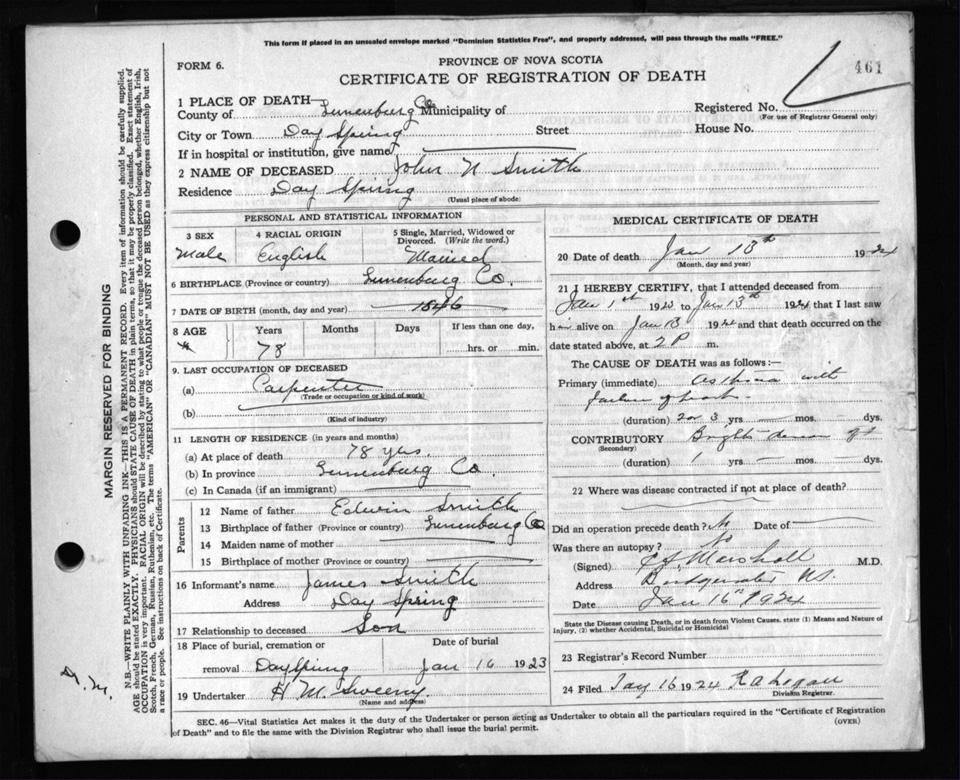 This form if placed in an unsealed envelope marked "Dominion Statistics Free", and properly addressed, will pass through the mails "FREE."
FORM 6.
PROVINCE OF NOVA SCOTIA
CERTIFICATE OF REGISTRATION OF DEATH
461
1 PLACE OF DEATH—
County of Lunenburg Co Municipality of
Registered No.
(For use of Registrar General only)
City or Town Day Spring Street House No.
If in hospital or institution, give name
2 NAME OF DECEASED John N Smith
Residence Day Spring
(Usual place of abode)
PERSONAL AND STATISTICAL INFORMATION
3 SEX 4 RACIAL ORIGIN 5 Single, Married, Widowed or Divorced. (Write the word.)
Male English Married
6 BIRTHPLACE (Province or country) Lunenburg Co.
7 DATE OF BIRTH (month, day and year) 1846
8 AGE Years Months Days If less than one day,
78 hrs. or min.
9. LAST OCCUPATION OF DECEASED
(a) Carpenter
(Trade or occupation or kind of work)
(b)
(Kind of industry)
11 LENGTH OF RESIDENCE (in years and months)
(a) At place of death 78 yrs.
(b) In province Lunenburg Co
(c) In Canada (if an immigrant)
Parents
12 Name of father Edwin Smith
13 Birthplace of father (Province or country) Lunenburg Co
14 Maiden name of mother
15 Birthplace of mother (Province or country)
16 Informant's name James Smith
Address Day Spring
17 Relationship to deceased Son
18 Place of burial, cremation or removal Day Spring
Date of burial Jan 16 1923
19 Undertaker H M Sweeny
(Name and address)
MEDICAL CERTIFICATE OF DEATH
20 Date of death Jan 13th 1924
(Month, day and year)
21 I HEREBY CERTIFY, that I attended deceased from
Jan 1st 192 to Jan 13th 1924 that I last saw
him alive on Jan 13 192 and that death occurred on the
date stated above, at 2 P m.
The CAUSE OF DEATH was as follows:—
Primary (immediate) Asthma with
failure of heart.
(duration) 2 or 3 yrs mos. dys.
CONTRIBUTORY Brights
(Secondary)
(duration) 1 yrs mos. dys.
22 Where was disease contracted if not at place of death?
Did an operation precede death? No Date of
Was there an autopsy? No
(Signed) Marshall M.D.
Address Bridgewater NS.
Date Jan 16th 1924
State the Disease causing Death, or in death from Violent Causes, state (1) Means and Nature of
Injury, (2) whether Accidental, Suicidal or Homicidal
23 Registrar's Record Number
24 Filed Jany 16 1924
Division Registrar.
SEC. 46—Vital Statistics Act makes it the duty of the Undertaker or person acting as Undertaker to obtain all the particulars required in the "Certificate of Registration
of Death" and to file the same with the Division Registrar who shall issue the burial permit.
(OVER)
MARGIN RESERVED FOR BINDING
N.B.—WRITE PLAINLY WITH UNFADING INK—THIS IS A PERMANENT RECORD. Every item of information should be carefully supplied.
AGE should be stated EXACTLY. PHYSICIANS should STATE CAUSE OF DEATH in plain terms, so that it may be properly classified. Exact statement of
OCCUPATION is very important. RACIAL ORIGIN will be described by stating to what people or tongue the deceased person belonged, whether English, Irish,
Scotch, French, German, Russian, Ruthenian, etc. The terms "AMERICAN" OR "CANADIAN" MUST NOT BE USED as they express citizenship but not
a race or people. See instructions on back of Certificate.